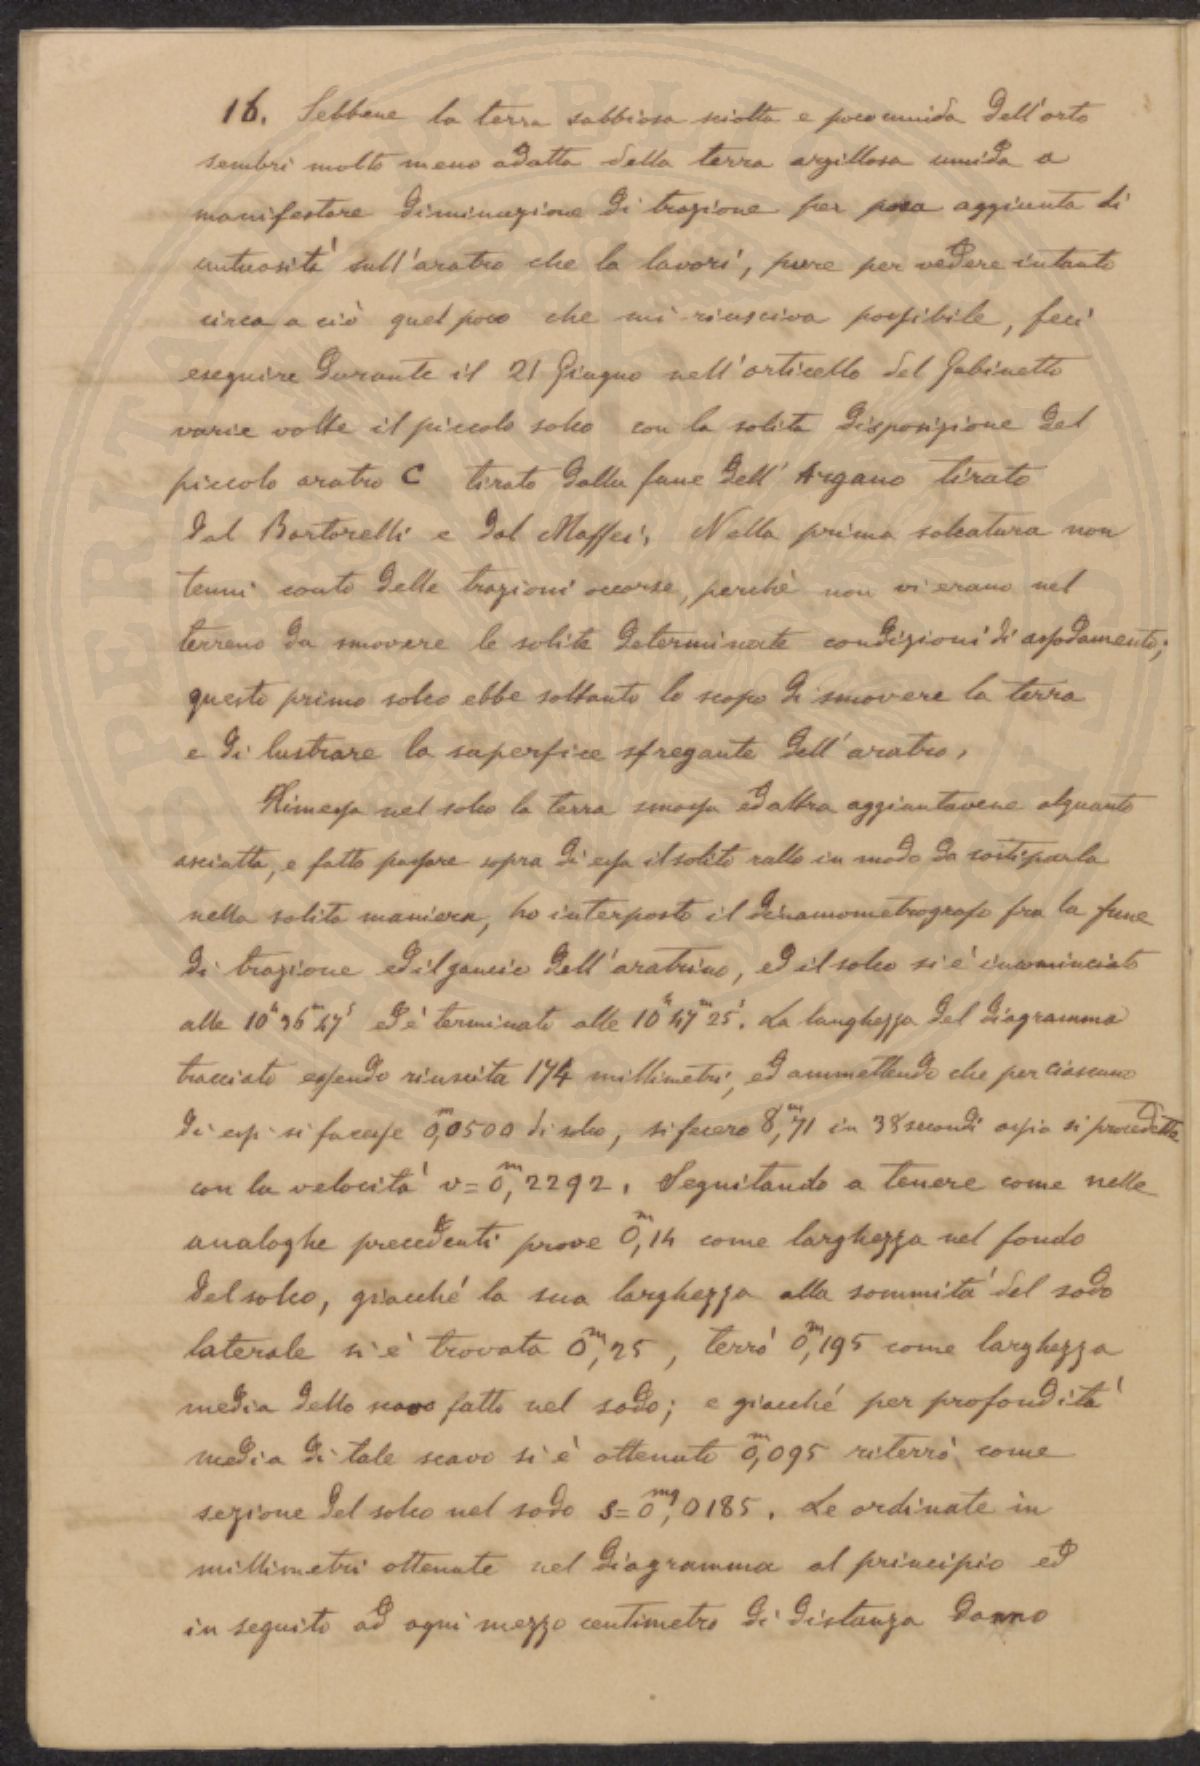 16. Sebbene la terra sabbiosa sciolta e poco umida dell'orto
sembri molto meno adatta della terra argillosa umida a
manifestare diminuzione di trazione per poca aggiunta di
untuosità sull'aratro che la lavori, pure per vedere intanto
circa a ciò quel poco che mi riusciva possibile, feci
eseguire durante il 21 Giugno nell'orticello del Gabinetto
varie volte il piccolo solco con la solita disposizione del
piccolo aratro C tirato dalla fune dell'Argano tirato
dal Bortorelli e dal Maffei. Nella prima solcatura non
tenni conto delle trazioni occorse, perchè non vi erano nel
terreno da smovere le solite determinate condizioni di assodamento;
questo primo solco ebbe soltanto lo scopo di smovere la terra
e di lustrare la superfice sfregante dell'aratro.
Rimessa nel solco la terra smossa ed altra aggiuntavene alquanto
asciatta, e fatto passare sopra di essa il solito rullo in modo da costiparla
nella solita maniera, ho interposto il dinamometrografo fra la fune
di trazione ed il gancio dell'aratrino, ed il solco si è incominciato
alle 10h 36m 47s ed è terminato alle 10h 47m 25s. La lunghezza del diagramma
tracciato essendo riuscita 174 millimetri, ed ammettendo che per ciascuno
di essi si facesse 0,m0500 di solco, si fecero 8,m71 in 38 secondi ossia si procedette
con la velocità v=0,m2292. Seguitando a tenere come nelle
analoghe precedenti prove 0,m14 come larghezza nel fondo
del solco, giacché la sua larghezza alla sommità del sodo
laterale si è trovata 0,m25, terrò 0,m195 come larghezza
media dello scavo fatto nel sodo; e giacché per profondità
media di tale scavo si è ottenuto 0,m095 riterrò come
sezione del solco nel sodo s=0,mq0185. Le ordinate in
millimetri ottenute nel diagramma al principio ed
in seguito ad ogni mezzo centimetro di distanza danno